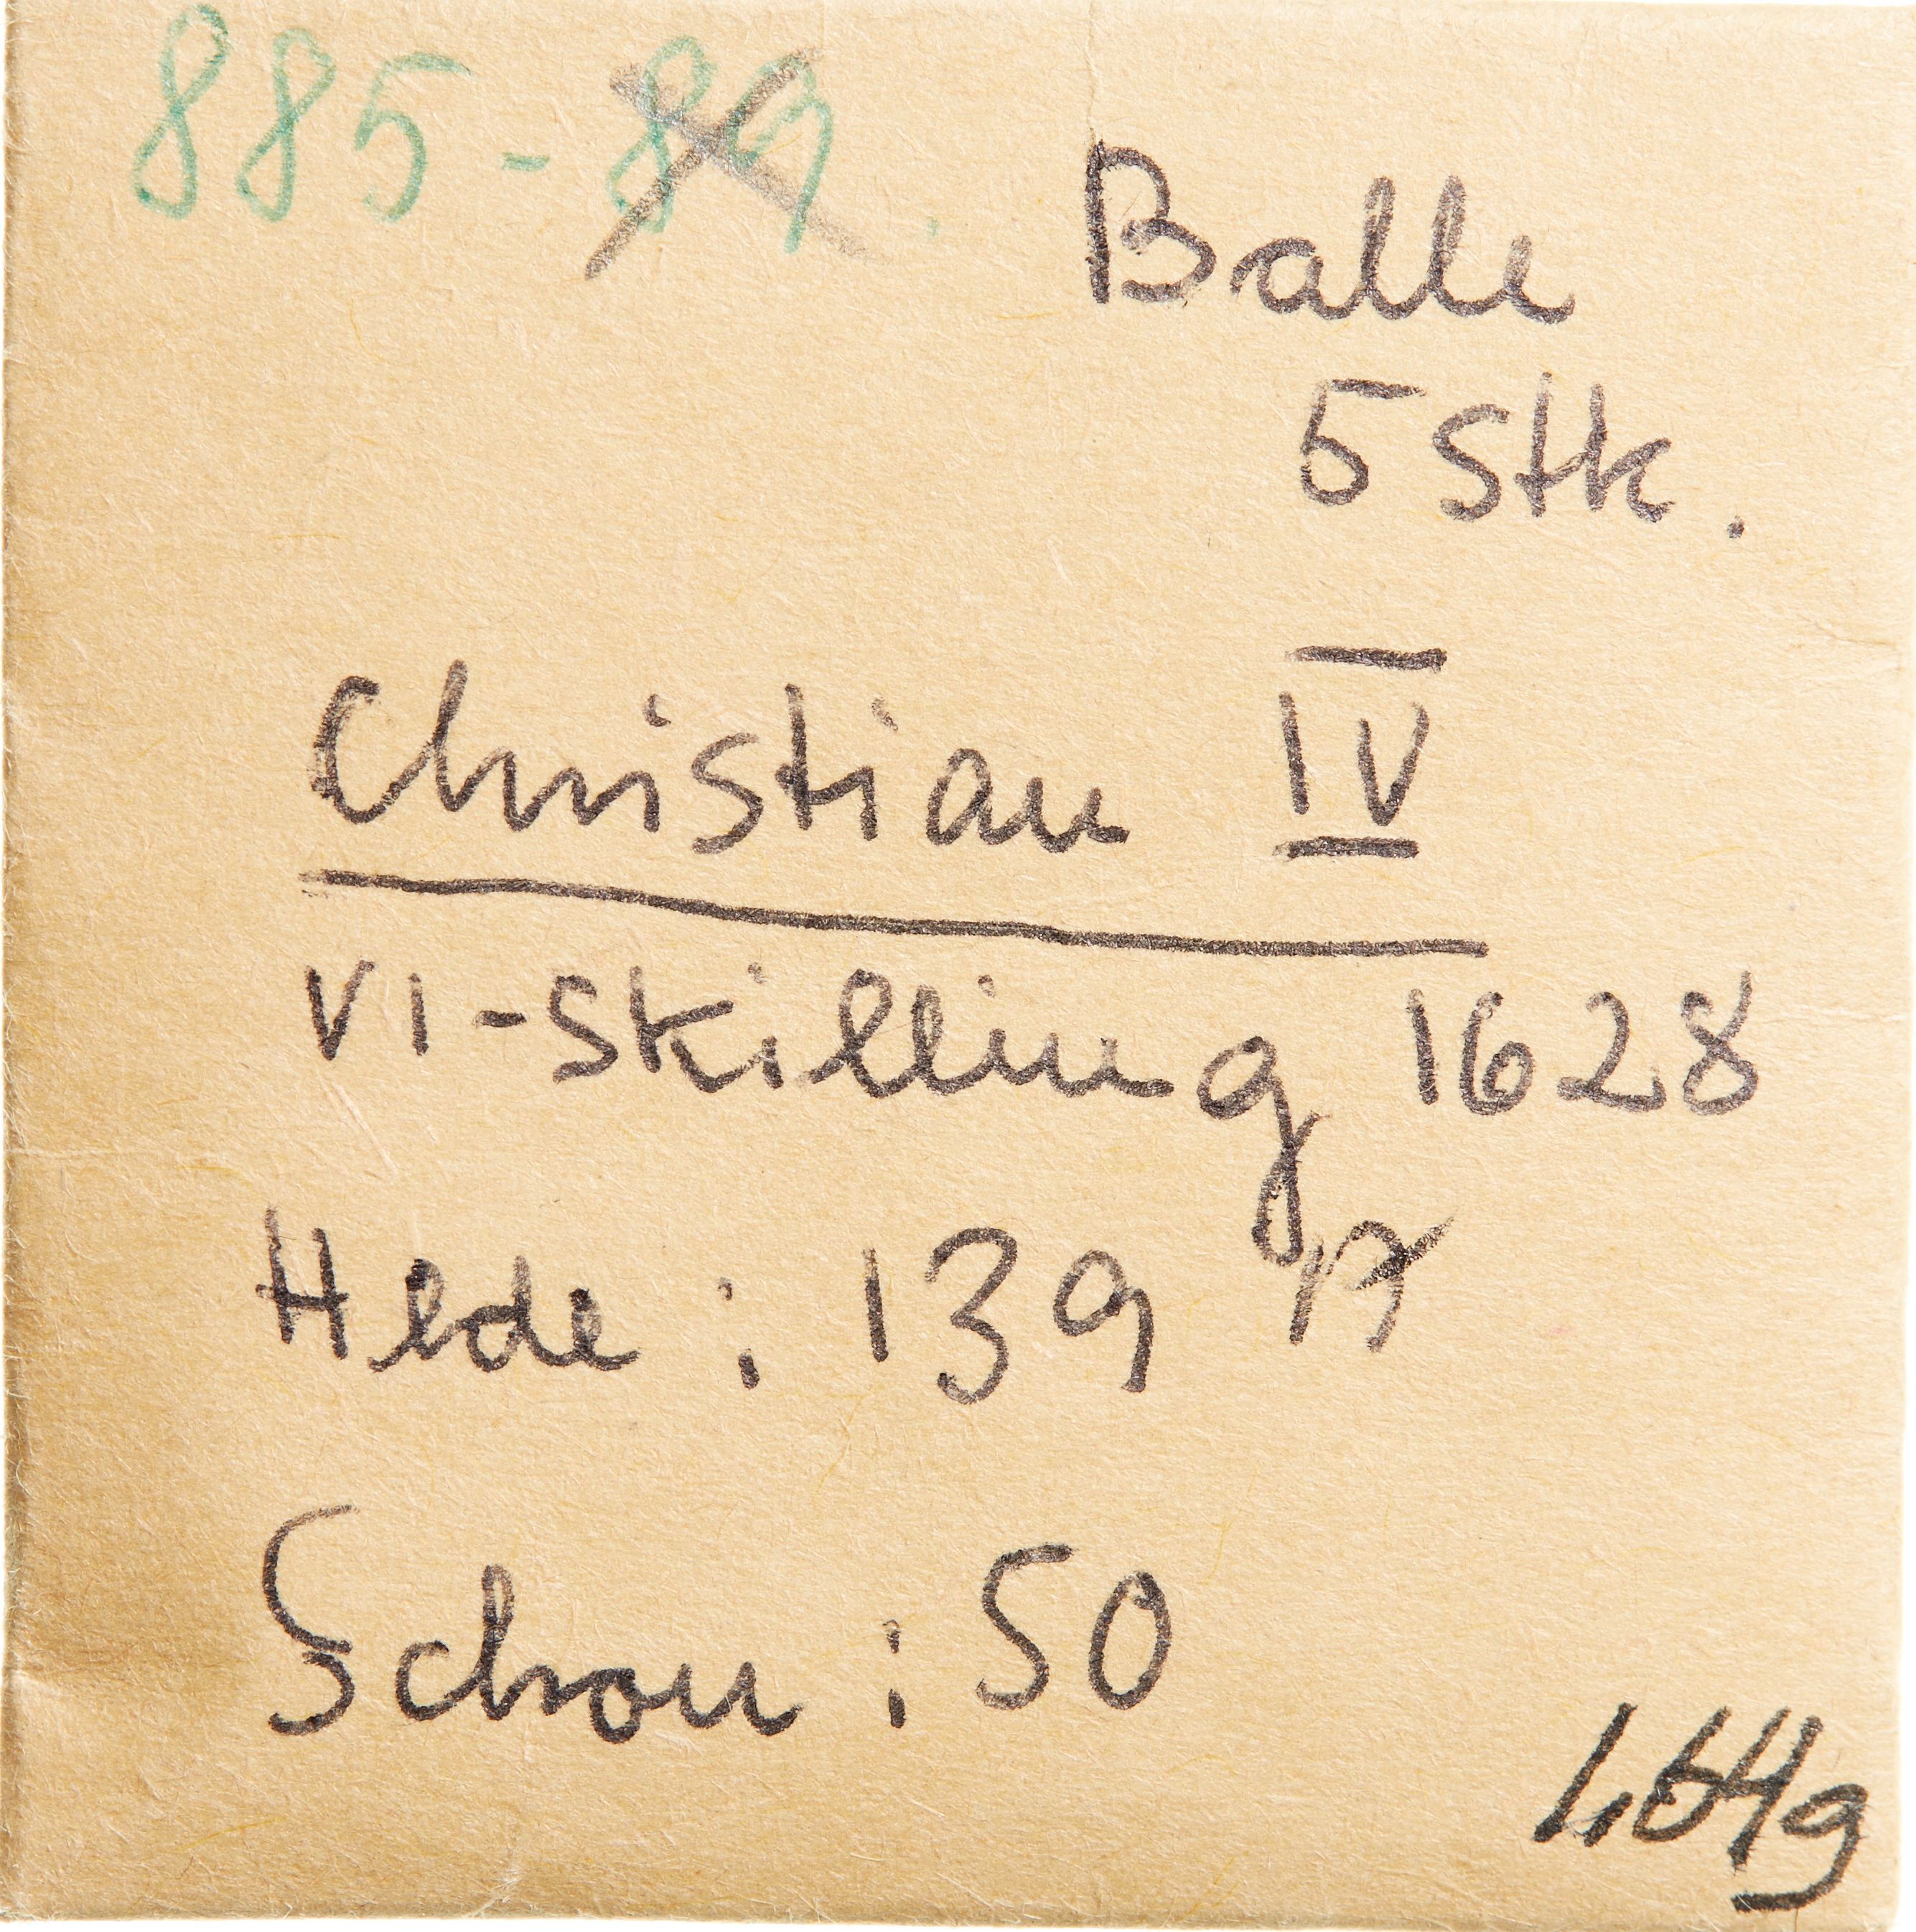 885-89.
Balle
5 Stk.
Christian IV
VI-Skilling 1628
Hede: 139 A
Schou: 50
1,64g